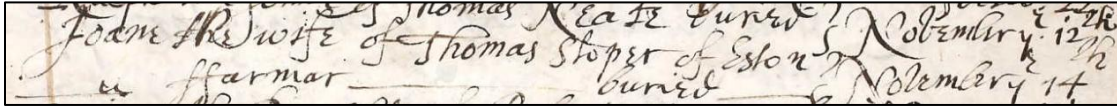 Thomas Neate buried
Joane the wife of Thomas Sloper of Eston Novembery e 12th
ffarmar buried Novembery e 14th